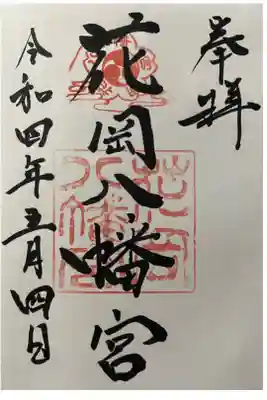 奉拝
花岡八幡宮
令和四年五月四日
花岡八幡宮